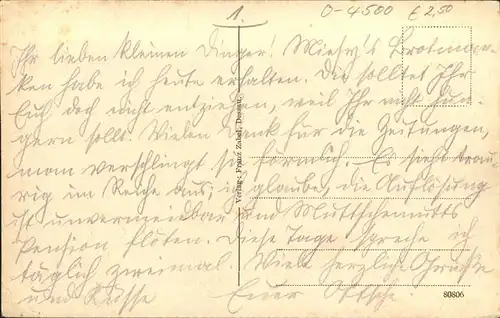 1.
0-4500 £2,50
Ihr lieben kleinen Dinger! Brotmar-
ken habe ich heute erhalten. Die solltet Ihr
Euch doch nicht entziehen, weil Ihr nicht hun-
gern sollt. Vielen Dank für die Zeitungen,
man verschlingt sie förmlich. Es sieht trau-
rig im Reiche aus, ich glaube, die Auflösung
ist unvermeidbar und
Pension flöten. Diese Tage spreche ich
täglich zweimal. Viele herzliche Grüsse
und Küsse Euer
Verlag: Franz Zabel, Dessau.
80806